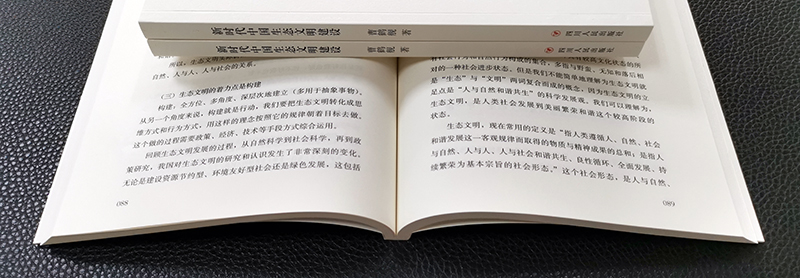 新时代中国生态文明建设 曹鹤舰 著 四川人民出版社
新时代中国生态文明建设 曹鹤舰 著 四川人民出版社
自然、人与人、人与社会的关系。
（三）生态文明的着力点是构建
构建，全方位、多角度、深层次地建立（多用于抽象事物）。
从另一个角度来说，构建就是行动，我们要把生态文明转化成思
维方式和行为方式，用这样的理念按照它的规律朝着目标去做。
这个做的过程需要政策、经济、技术等手段方式综合运用。
回顾生态文明发展的过程，从自然科学到社会科学，再到政
策研究，我国对生态文明的研究和认识发生了非常深刻的变化。
无论是建设资源节约型、环境友好型社会还是绿色发展，这包括
088
对的一种社会进步状态。但是我们不能简单地理解为生态文明就
是“生态”与“文明”两词复合而成的概念，因为生态文明的立
足点是“人与自然和谐共生”的科学发展观。我们可以理解为，
生态文明，是人类社会发展到美丽繁荣和谐这个较高阶段的
状态。
生态文明，现在常用的定义是“指人类遵循人、自然、社会
和谐发展这一客观规律而取得的物质与精神成果的总和；是指人
与自然、人与人、人与社会和谐共生、良性循环、全面发展、持
续繁荣为基本宗旨的社会形态。”这个社会形态，是人与自然、
089